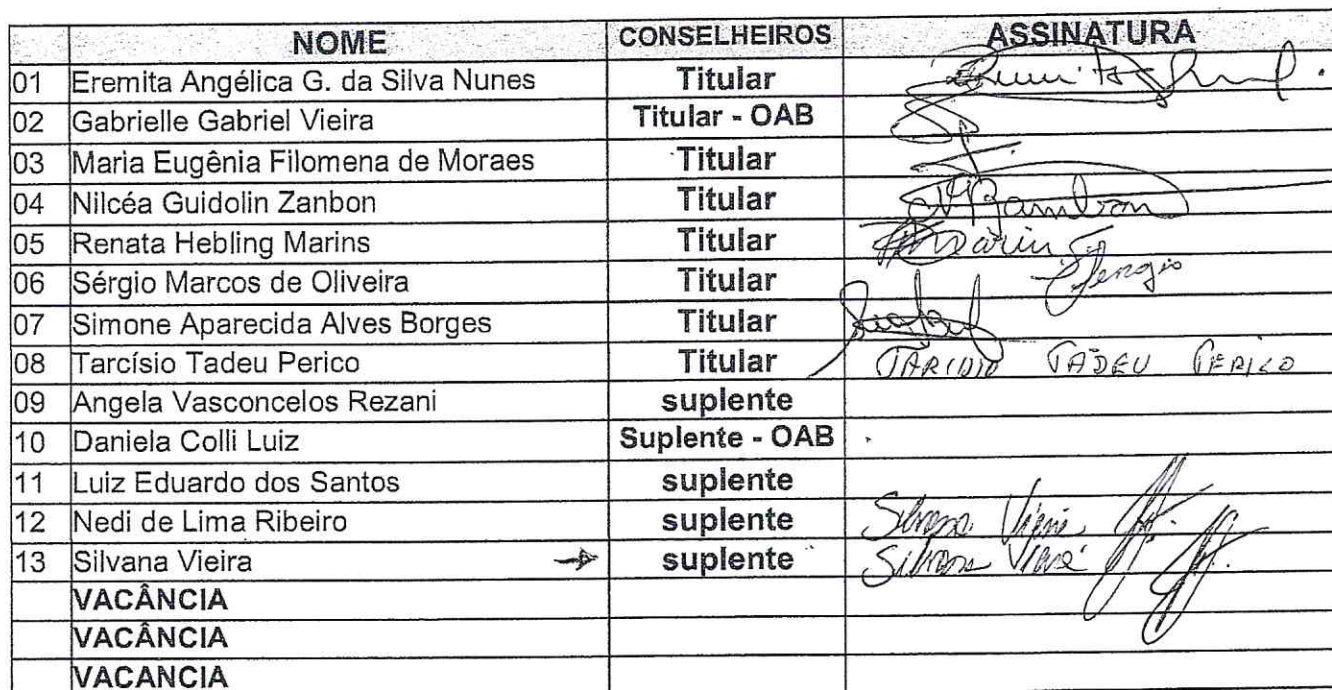 NOME CONSELHEIROS ASSINATURA
01 Eremita Angélica G. da Silva Nunes Titular
02 Gabrielle Gabriel Vieira Titular - OAB
03 Maria Eugênia Filomena de Moraes Titular
04 Nilcéa Guidolin Zanbon Titular Zambon
05 Renata Hebling Marins Titular Marins
06 Sérgio Marcos de Oliveira Titular Sergio
07 Simone Aparecida Alves Borges Titular
08 Tarcísio Tadeu Perico Titular TADEU PERICO
09 Angela Vasconcelos Rezani suplente
10 Daniela Colli Luiz Suplente - OAB
11 Luiz Eduardo dos Santos suplente
12 Nedi de Lima Ribeiro suplente Silvana Vieira
13 Silvana Vieira → suplente Silvana Vieira
VACÂNCIA
VACÂNCIA
VACANCIA